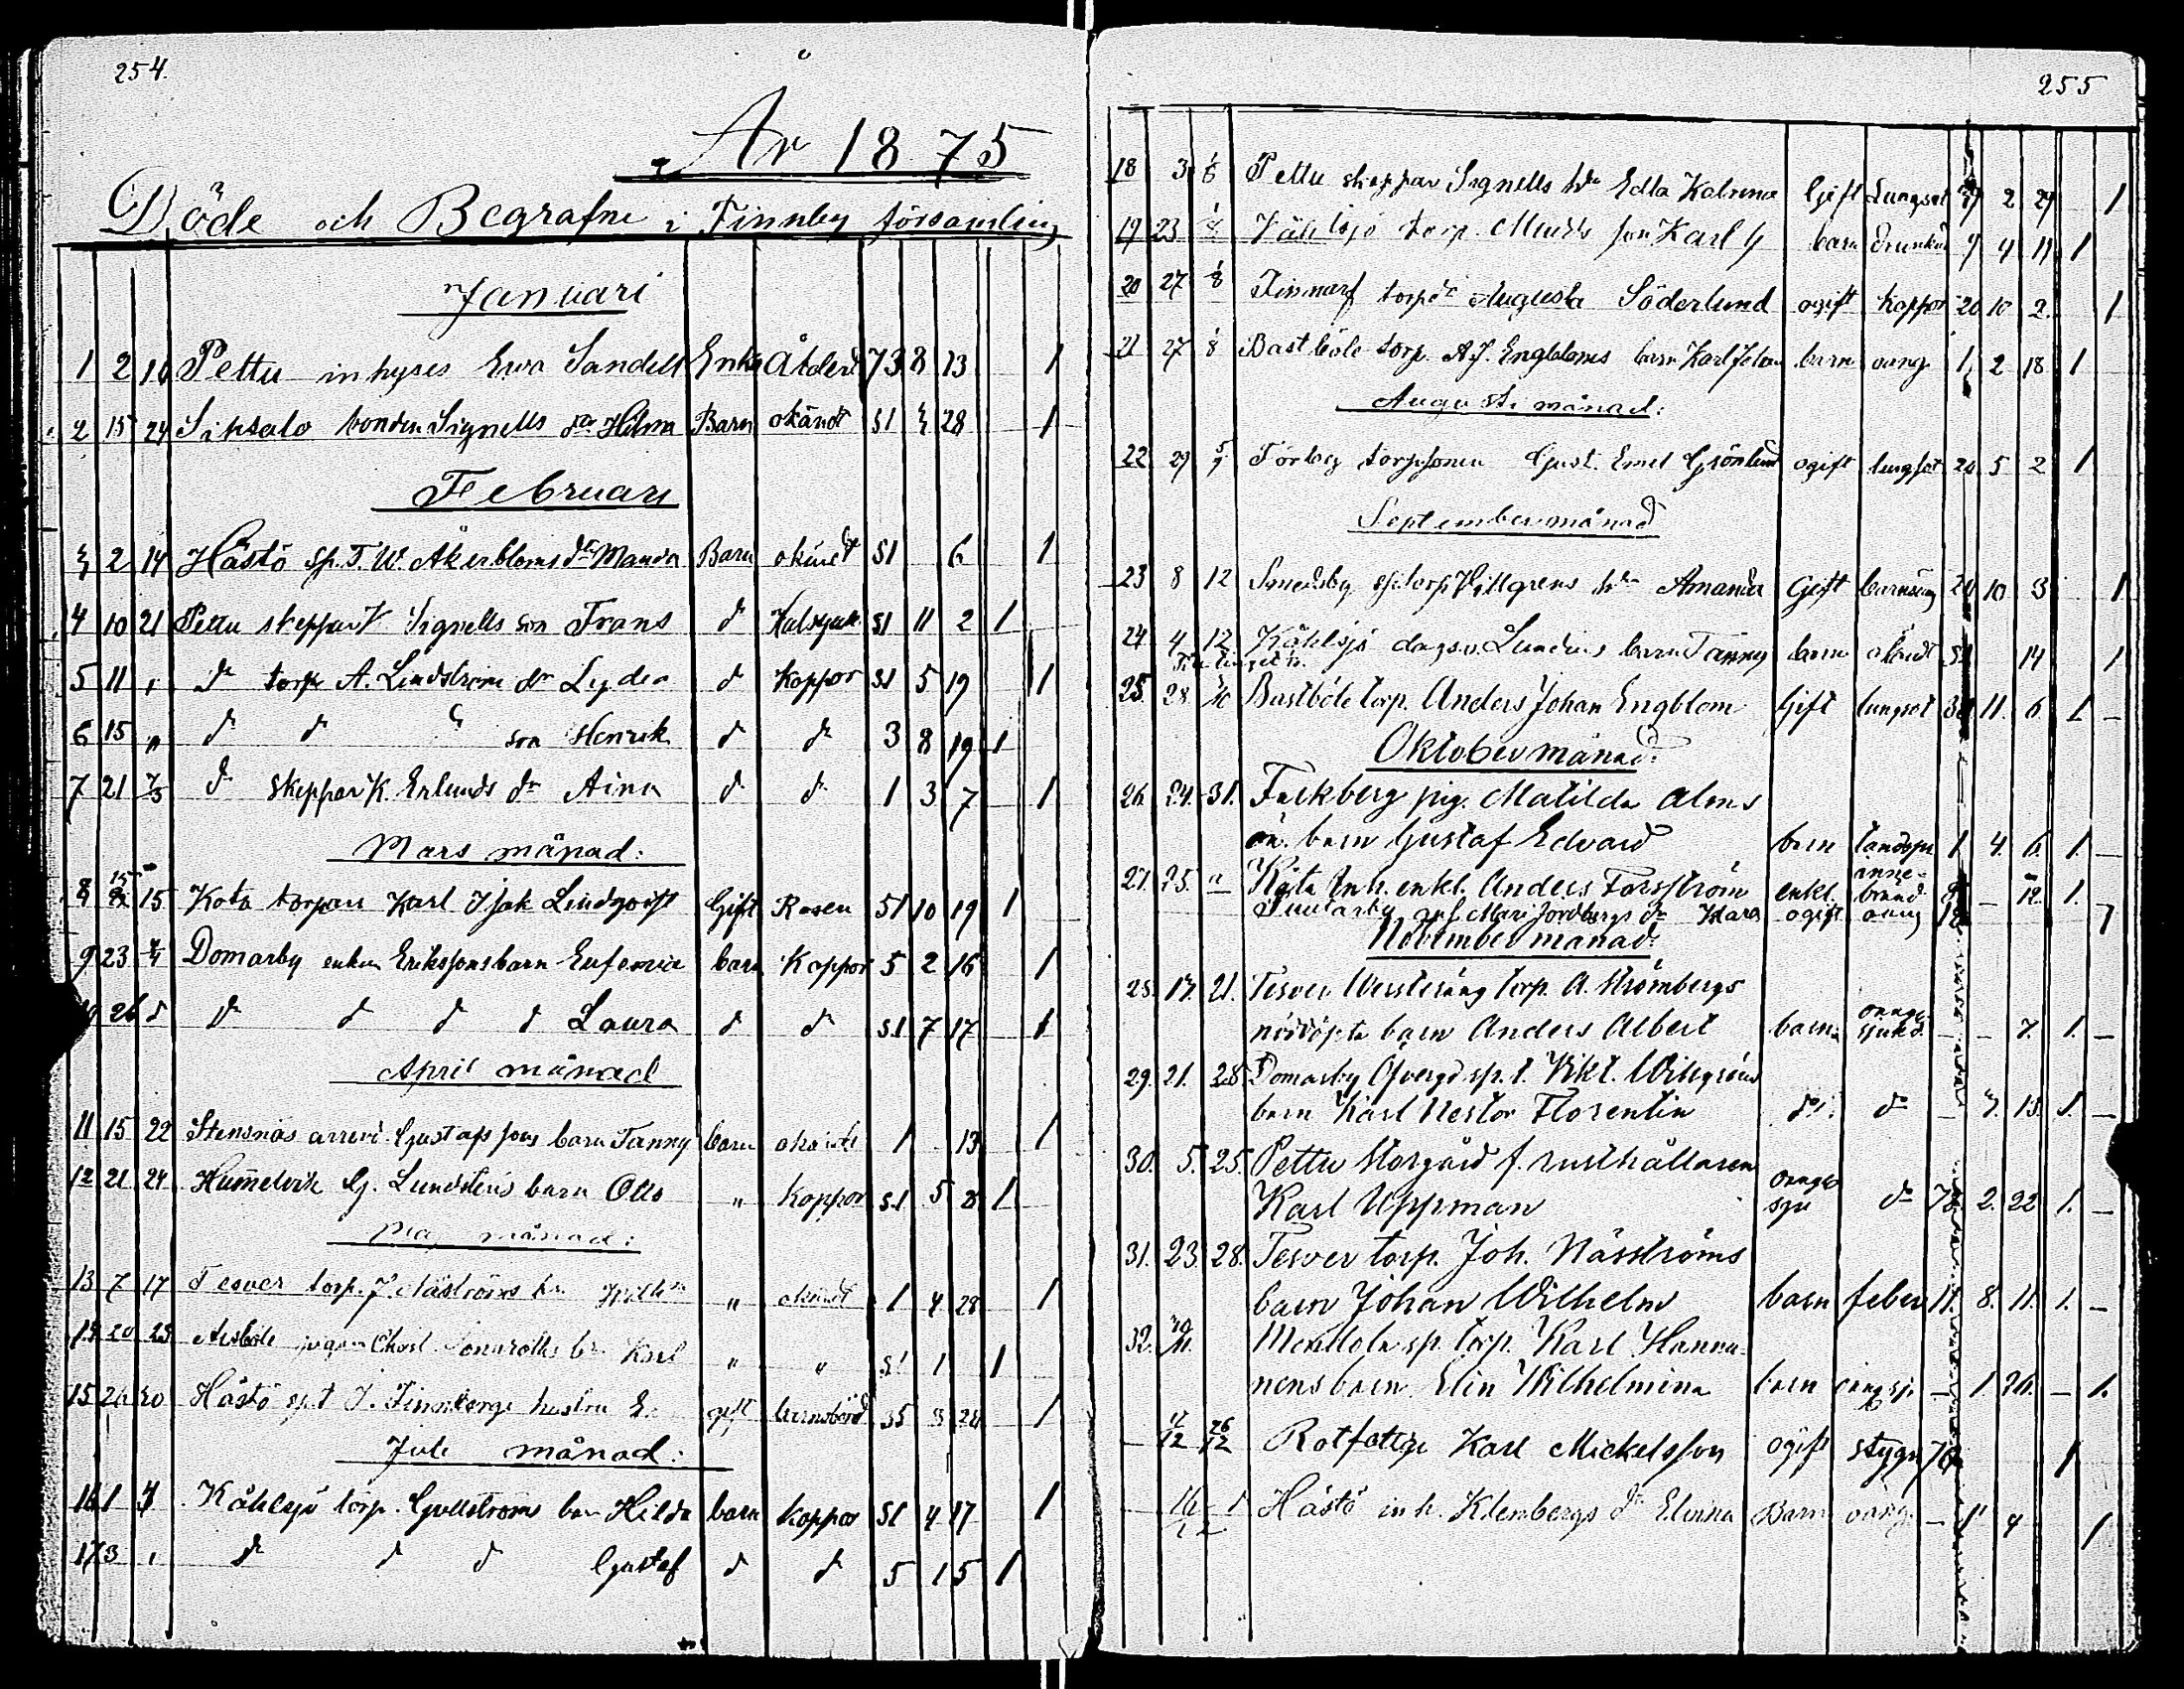 254.
År 1875
Döde och Begrafne i Finnby församling
Januari
1 2 10 Pettu inhyses Ewa Sandell Enka Ålderd 73 8 13 1
2 15 24 Siksalo bonden Signells dr Hilma Barn okändt S1 3 28 1
Februari
3 2 14 Hästö sp. T. W. Åkerbloms dr Manda Barn okändt S1 6 1
4 10 21 Pettu skeppar K Signells son Frans d S1 11 2 1
5 11 " dr torp A. Lindströms dr Lydia d Koppor S1 5 19 1
6 15 " dr d son Henrik d dr 3 8 19 1
7 21 7/3 dr skeppar K. Erlunds dr Aina d dr 1 3 7 1
Mars månad:
8 15 Kota torparn Karl Isak Lindqvist Gift Rosen 51 10 19 1
9 23 Domarby enkan Erikssons barn Eufemia barn Koppor 5 2 16 1
26 d dr d d d Laura d d S1 7 17 1
April månad
11 15 22 Stensnäs arrend. Gustafssons barn Fanny barn okändt 1 13 1
12 21 24 Hummelvik G. Lundsténs barn Otto " Koppor S1 5 8 1
Maj månad:
13 7 17 Tesver torp. J. Näströms bn " okändt 1 4 28 1
20 Aisböle Karl " " S1 1 1
15 20 Hästö sp.t J. Finnbergs hustru E. gift barnsbörd 35 3 28 1
Juli månad:
16 1 4 Kåhlsjö torp. Gullströms barn Hilda barn koppor S1 4 17 1
17 3 " dr d d Gustaf d d 5 1 5 1
255
18 3 1/8 Pettu skeppar Signells hu Edla Katrina Gift Lungsot 2 29 1
19 23 torp. son Karl G barn Drunkn 9 4 11 1
20 27 1/8 Finnarf torpdr Augusta Söderlund ogift koppor 20 10 2. 1
21 27 1/8 Bastböle torp. A. J. Engbloms barn Karl Johan barn oäng 1 2 18 1
Augusti månad:
22 29 5/9 Förby torpsonen Gust. Emil Grönlund ogift lungsot 20 5 2 1
September månad
23 8 12 Smedsby sp.torp Willgrens hu Amanda Gift barnsäng 24 10 3 1
24 4 12 Kåhlsjö dagsv. Lundins barn Fanny barn okändt S1 14 1
25. 28. Bastböle torp. Anders Johan Engblom Gift lungsot 11. 6. 1. –
Oktober månad:
26. 24. 31. Falkberg pig. Matilda Alms
oä. barn Gustaf Edvard barn tandspr 1 4. 6. 1. –
27. 25. " Kota Inh. enkl. Anders Forsström enkl. inne-brand – 12. 1.
Mari Jordbergs dr Klara ogift oäng 1
November månad:
28. 17. 21. Tesver Westeräng torp. A. Strömbergs
nöddöpta barn Anders Albert barn oange sjukd. – – 7. 1. –
29. 21. 28. Domarby Öfvergd sp. t. Vikt. Willgréns
barn Karl Nestor Florentin do. do – 7. 13. 1. –
30. 5. 25. Pettu Storgård f. rusthållaren
Karl Uppman oange sju do 78. 2. 22 1. –
31. 23. 28. Tesver torp. Joh. Näsströms
barn Johan Wilhelm barn feber 11. 8. 11. 1. –
32. Mentola sp. torp. Karl Hannu-
nens barn Elin Wilhelmina barn oang sj. – 1. 20. – 1.
– 17/12 26/12 Rotfattige Karl Mickelsson ogift stygn 1
16/12 Hästö inh. Klembergs dr Elvina Barn oäng. – 1 4 1